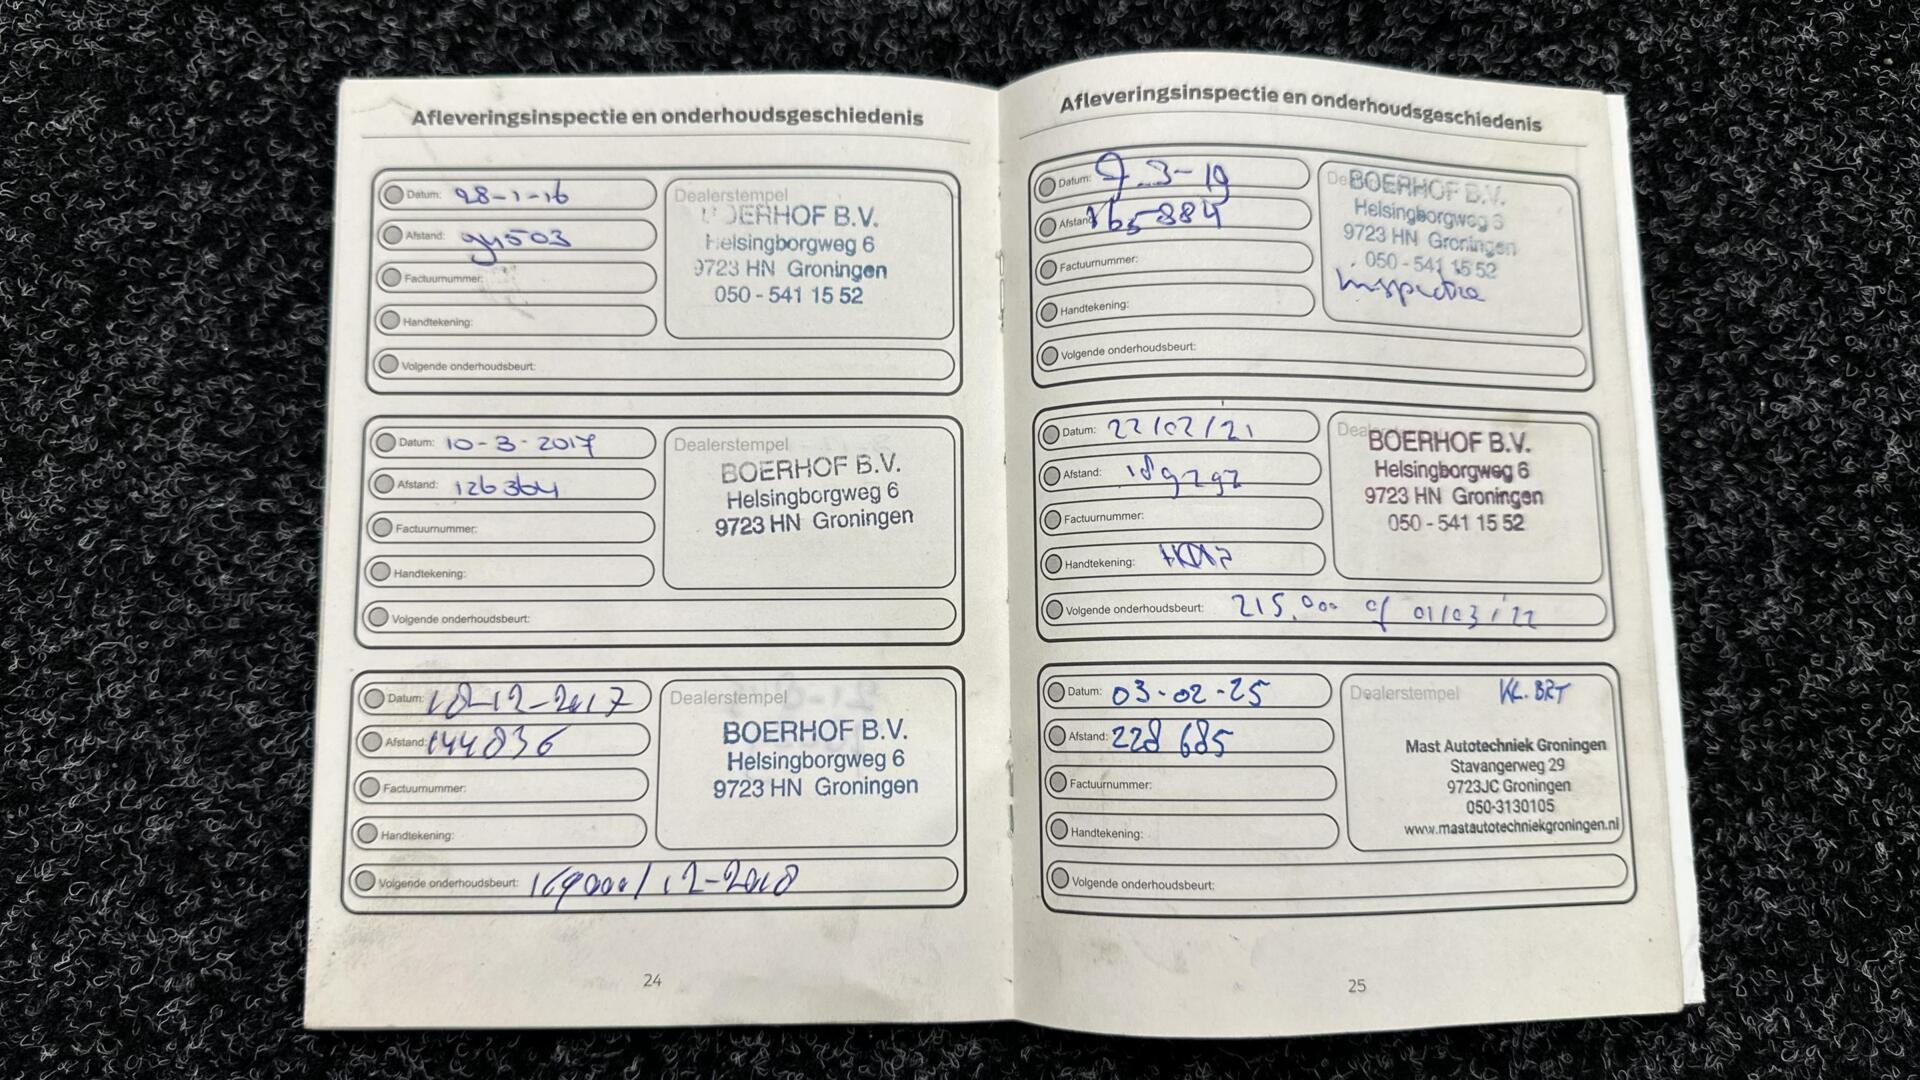 Afleveringsinspectie en onderhoudsgeschiedenis
Datum: 28-1-16
Afstand: 94503
Factuurnummer:
Handtekening:
Volgende onderhoudsbeurt:
Dealerstempel
BOERHOF B.V.
Helsingborgweg 6
9723 HN Groningen
050 - 541 15 52
Datum: 10-3-2017
Afstand: 126364
Factuurnummer:
Handtekening:
Volgende onderhoudsbeurt:
Dealerstempel
BOERHOF B.V.
Helsingborgweg 6
9723 HN Groningen
Datum: 18-12-2017
Afstand: 144836
Factuurnummer:
Handtekening:
Volgende onderhoudsbeurt: 169000/12-2018
Dealerstempel
BOERHOF B.V.
Helsingborgweg 6
9723 HN Groningen
24
Afleveringsinspectie en onderhoudsgeschiedenis
Datum: 7-3-19
Afstand: 165884
Factuurnummer:
Handtekening:
Volgende onderhoudsbeurt:
BOERHOF B.V.
Helsingborgweg 6
9723 HN Groningen
050 - 541 15 52
Inspectie
Datum: 22/02/21
Afstand: 189292
Factuurnummer:
Handtekening:
Volgende onderhoudsbeurt: 215.000 of 01/03/'22
BOERHOF B.V.
Helsingborgweg 6
9723 HN Groningen
050 - 541 15 52
Datum: 03-02-25
Afstand: 228 685
Factuurnummer:
Handtekening:
Volgende onderhoudsbeurt:
Dealerstempel KL. BRT
Mast Autotechniek Groningen
Stavangerweg 29
9723JC Groningen
050-3130105
www.mastautotechniekgroningen.nl
25